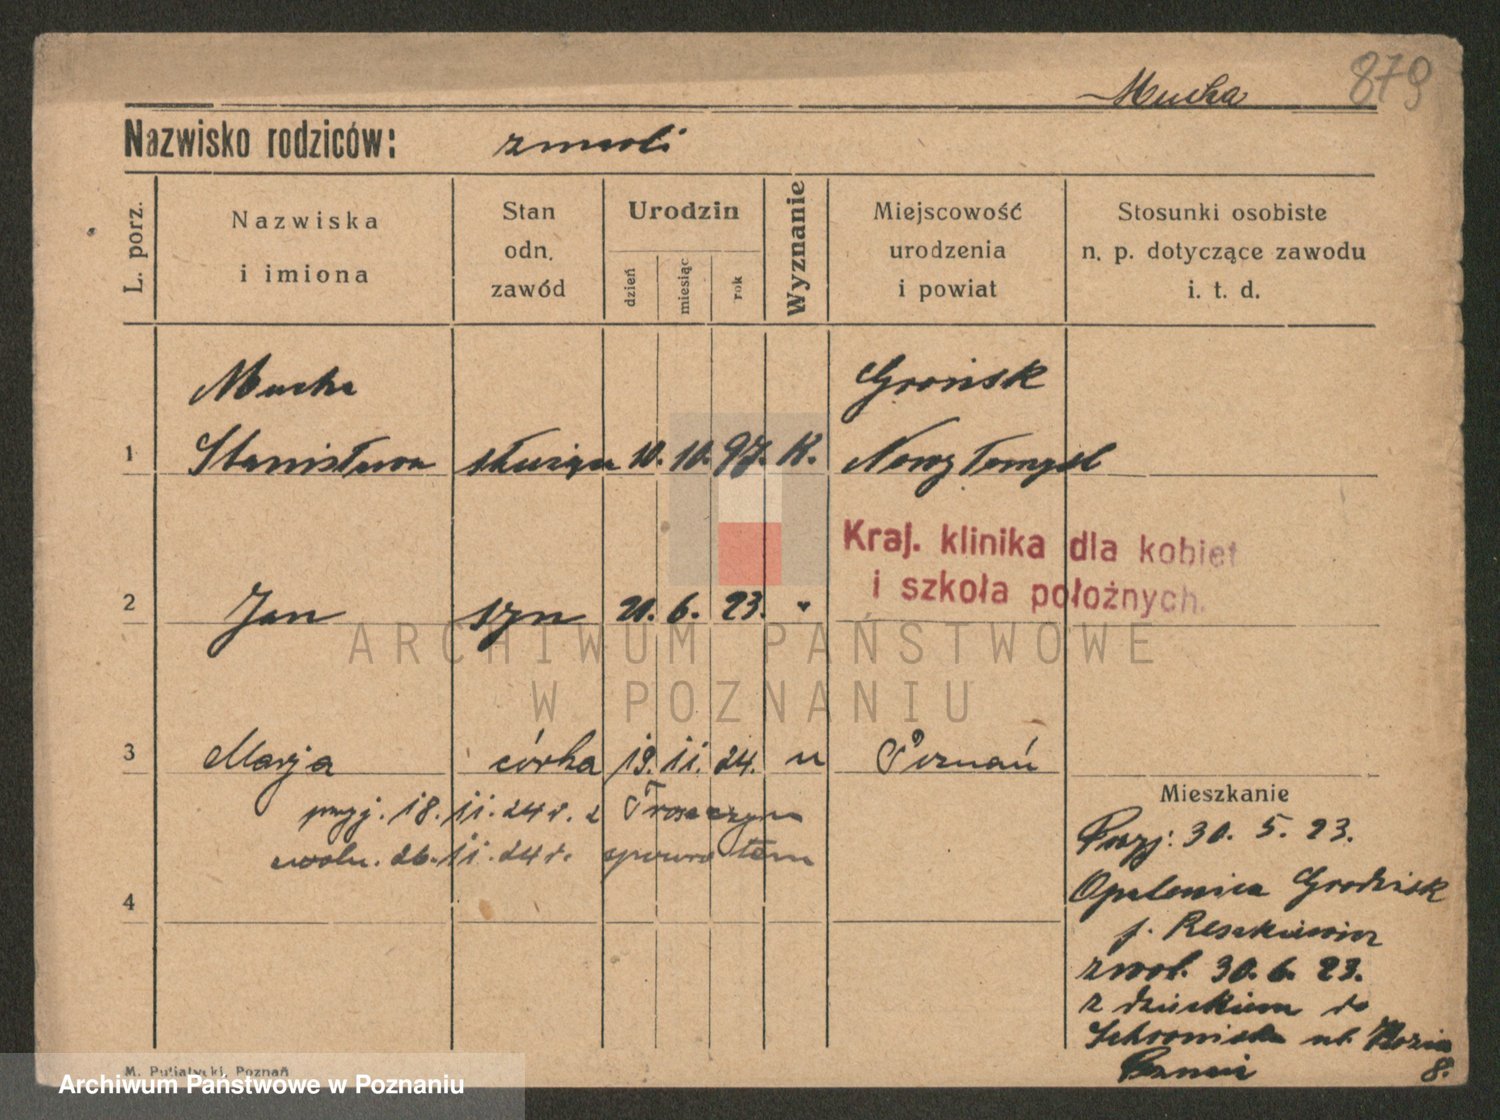 879
Mucha
Nazwisko rodziców: zmarli
L. porz.
Nazwiska
i imiona
Stan
odn.
zawód
Urodzin
dzień
miesiąc
rok
Wyznanie
Miejscowość
urodzenia
i powiat
Stosunki osobiste
n. p. dotyczące zawodu
i. t. d.
Mucha Grońsk
1 Stanisława służąca 10. 10. 97. K. Nowy Tomyśl
Kraj. klinika dla kobiet
i szkoła położnych.
2 Jan syn 21. 6. 23. "
3 Marja córka 19. 11. 24. " Poznań
przyj. 18. 11. 24 r. z
zwoln. 26. 11. 24 r. spowrotem
4
Mieszkanie
Przyj: 30. 5. 23.
Opalenica Grodzisk
p. Reszkiewicz
zwol. 30. 6. 23.
z dzieckiem do
Schroniska ul.
8.
M. Putiatycki, Poznań
ARCHIWUM PAŃSTWOWE
W POZNANIU
Archiwum Państwowe w Poznaniu